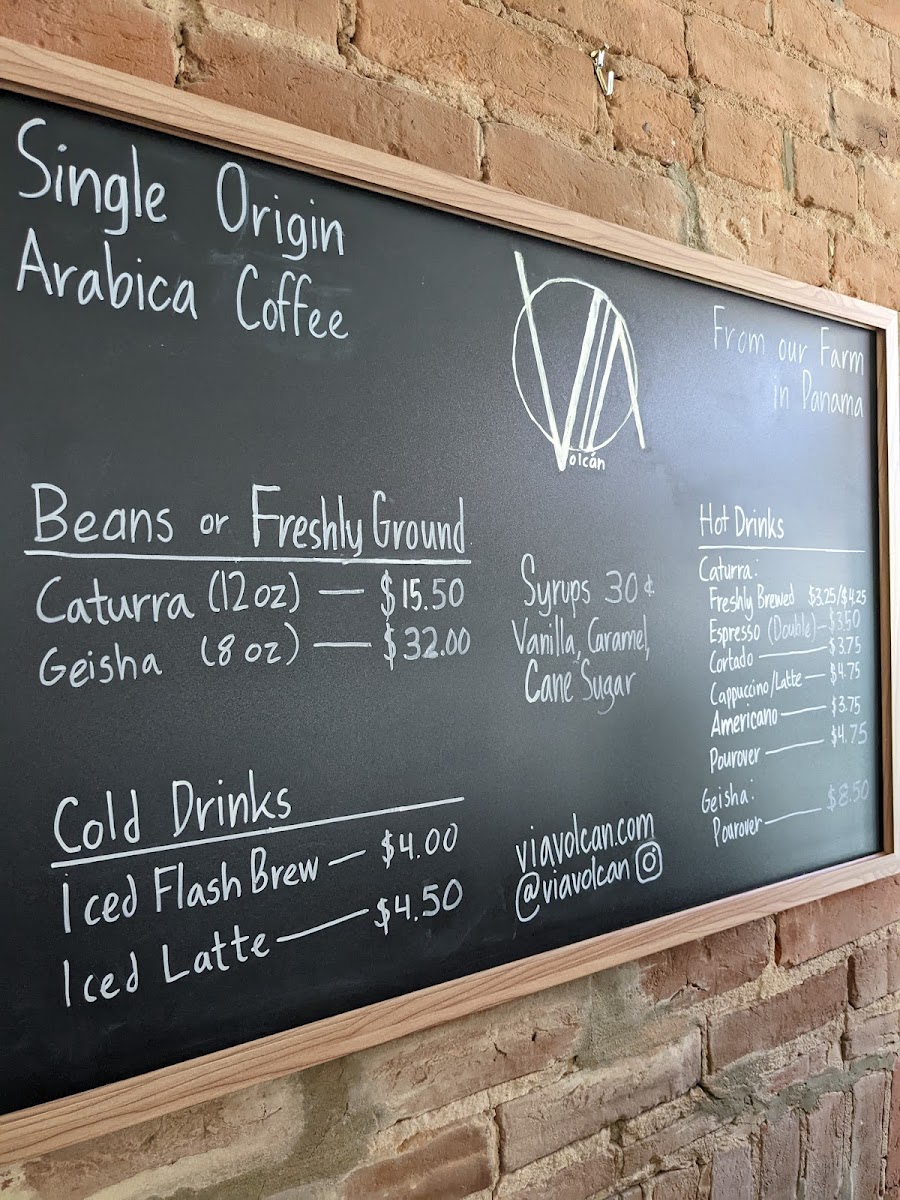 Single Origin
Arabica Coffee
VIA
Volcán
From our Farm
in Panama
Beans or Freshly Ground
Caturra (12 oz) — $15.50
Geisha (8 oz) — $32.00
Syrups 30¢
Vanilla, Caramel,
Cane Sugar
Hot Drinks
Caturra:
Freshly Brewed $3.25/$4.25
Espresso (Double) — $3.50
Cortado — $3.75
Cappuccino/Latte — $4.75
Americano — $3.75
Pourover — $4.75
Geisha:
Pourover — $8.50
Cold Drinks
Iced Flash Brew — $4.00
Iced Latte — $4.50
viavolcan.com
@viavolcan